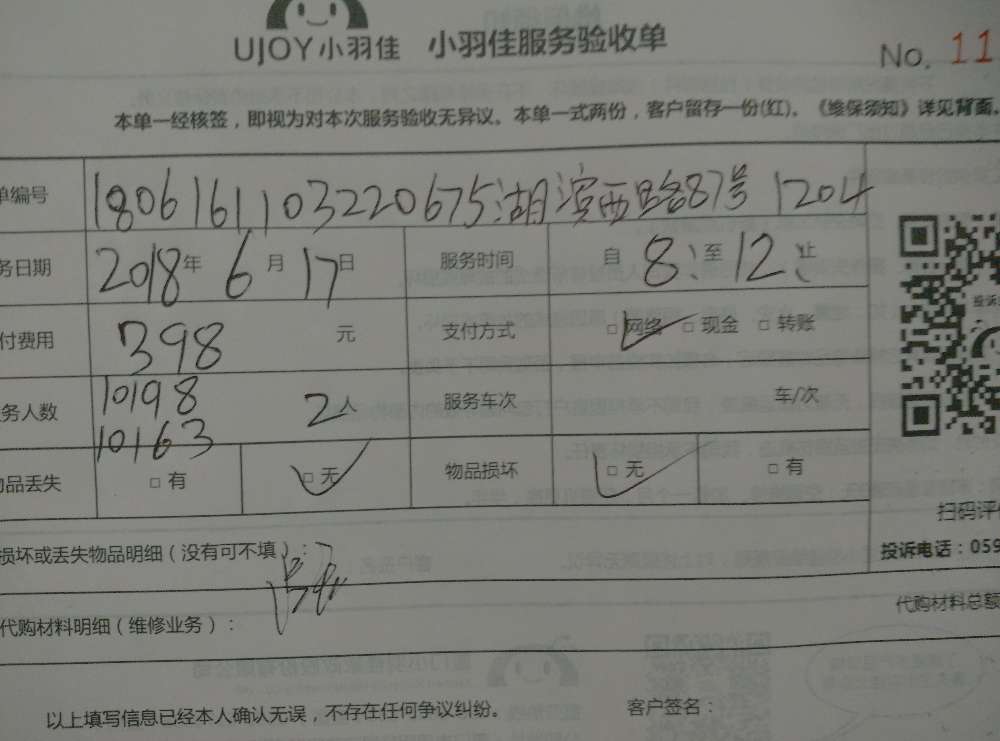 UJOY小羽佳 小羽佳服务验收单
No. 11
本单一经核签，即视为对本次服务验收无异议。本单一式两份，客户留存一份(红)。《维保须知》详见背面。
单编号 1806161103220675湖滨西路87号1204
务日期 2018年6月17日 服务时间 自8:至12:止
付费用 398元 支付方式 □网络 □现金 □转账
务人数 10198 10163 2人 服务车次 车/次
品丢失 □有 □无 物品损坏 □无 □有
扫码评价
损坏或丢失物品明细（没有可不填）：
投诉电话：059
代购材料明细（维修业务）：
代购材料总额
以上填写信息已经本人确认无误，不存在任何争议纠纷。 客户签名：